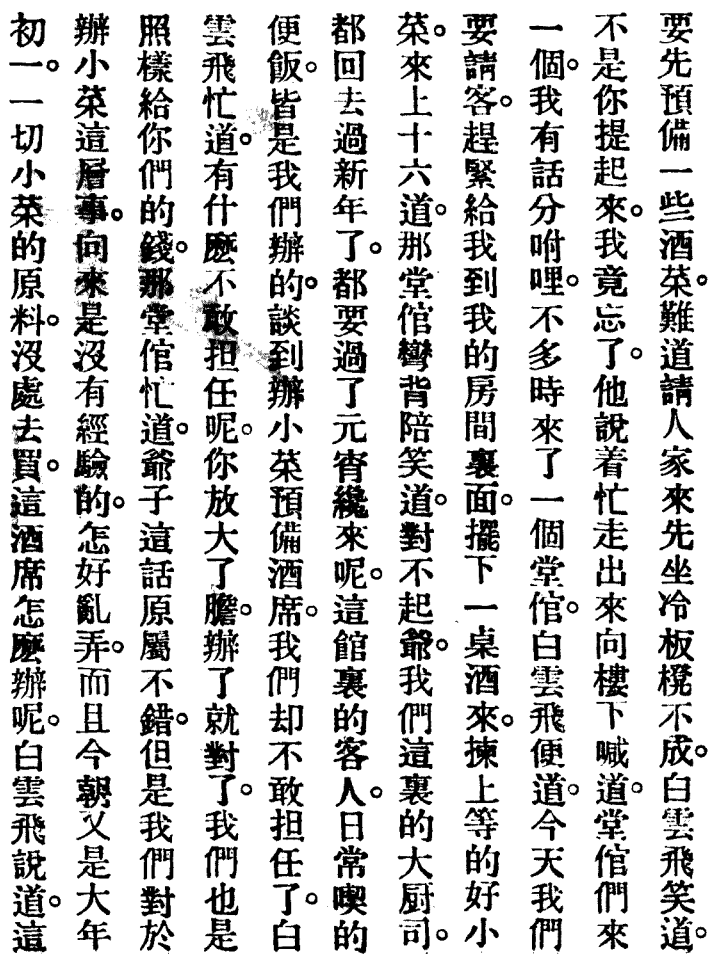 要先預備一些酒菜。難道請人家來先坐冷板櫈不成。白雲飛笑道。
不是你提起來。我竟忘了。他說着忙走出來向樓下喊道。堂倌們來
一個。我有話分咐哩。不多時來了一個堂倌。白雲飛便道。今天我們
要請客。趕緊給我到我的房間裏面。擺下一桌酒來。揀上等的好小
菜。來上十六道。那堂倌彎背陪笑道。對不起爺。我們這裏的大厨司。
都回去過新年了。都要過了元宵纔來呢。這館裏的客人。日常喫的
便飯。皆是我們辦的。談到辦小菜預備酒席。我們却不敢担任了。白
雲飛忙道。有什麽不敢担任呢。你放大了膽。辦了就對了。我們也是
照樣給你們的錢。那堂倌忙道。爺子這話原屬不錯。但是我們對於
辦小菜這層事。向來是沒有經驗的。怎好亂弄。而且今朝又是大年
初一。一切小菜的原料。沒處去買。這酒席怎麽辦呢。白雲飛說道。這